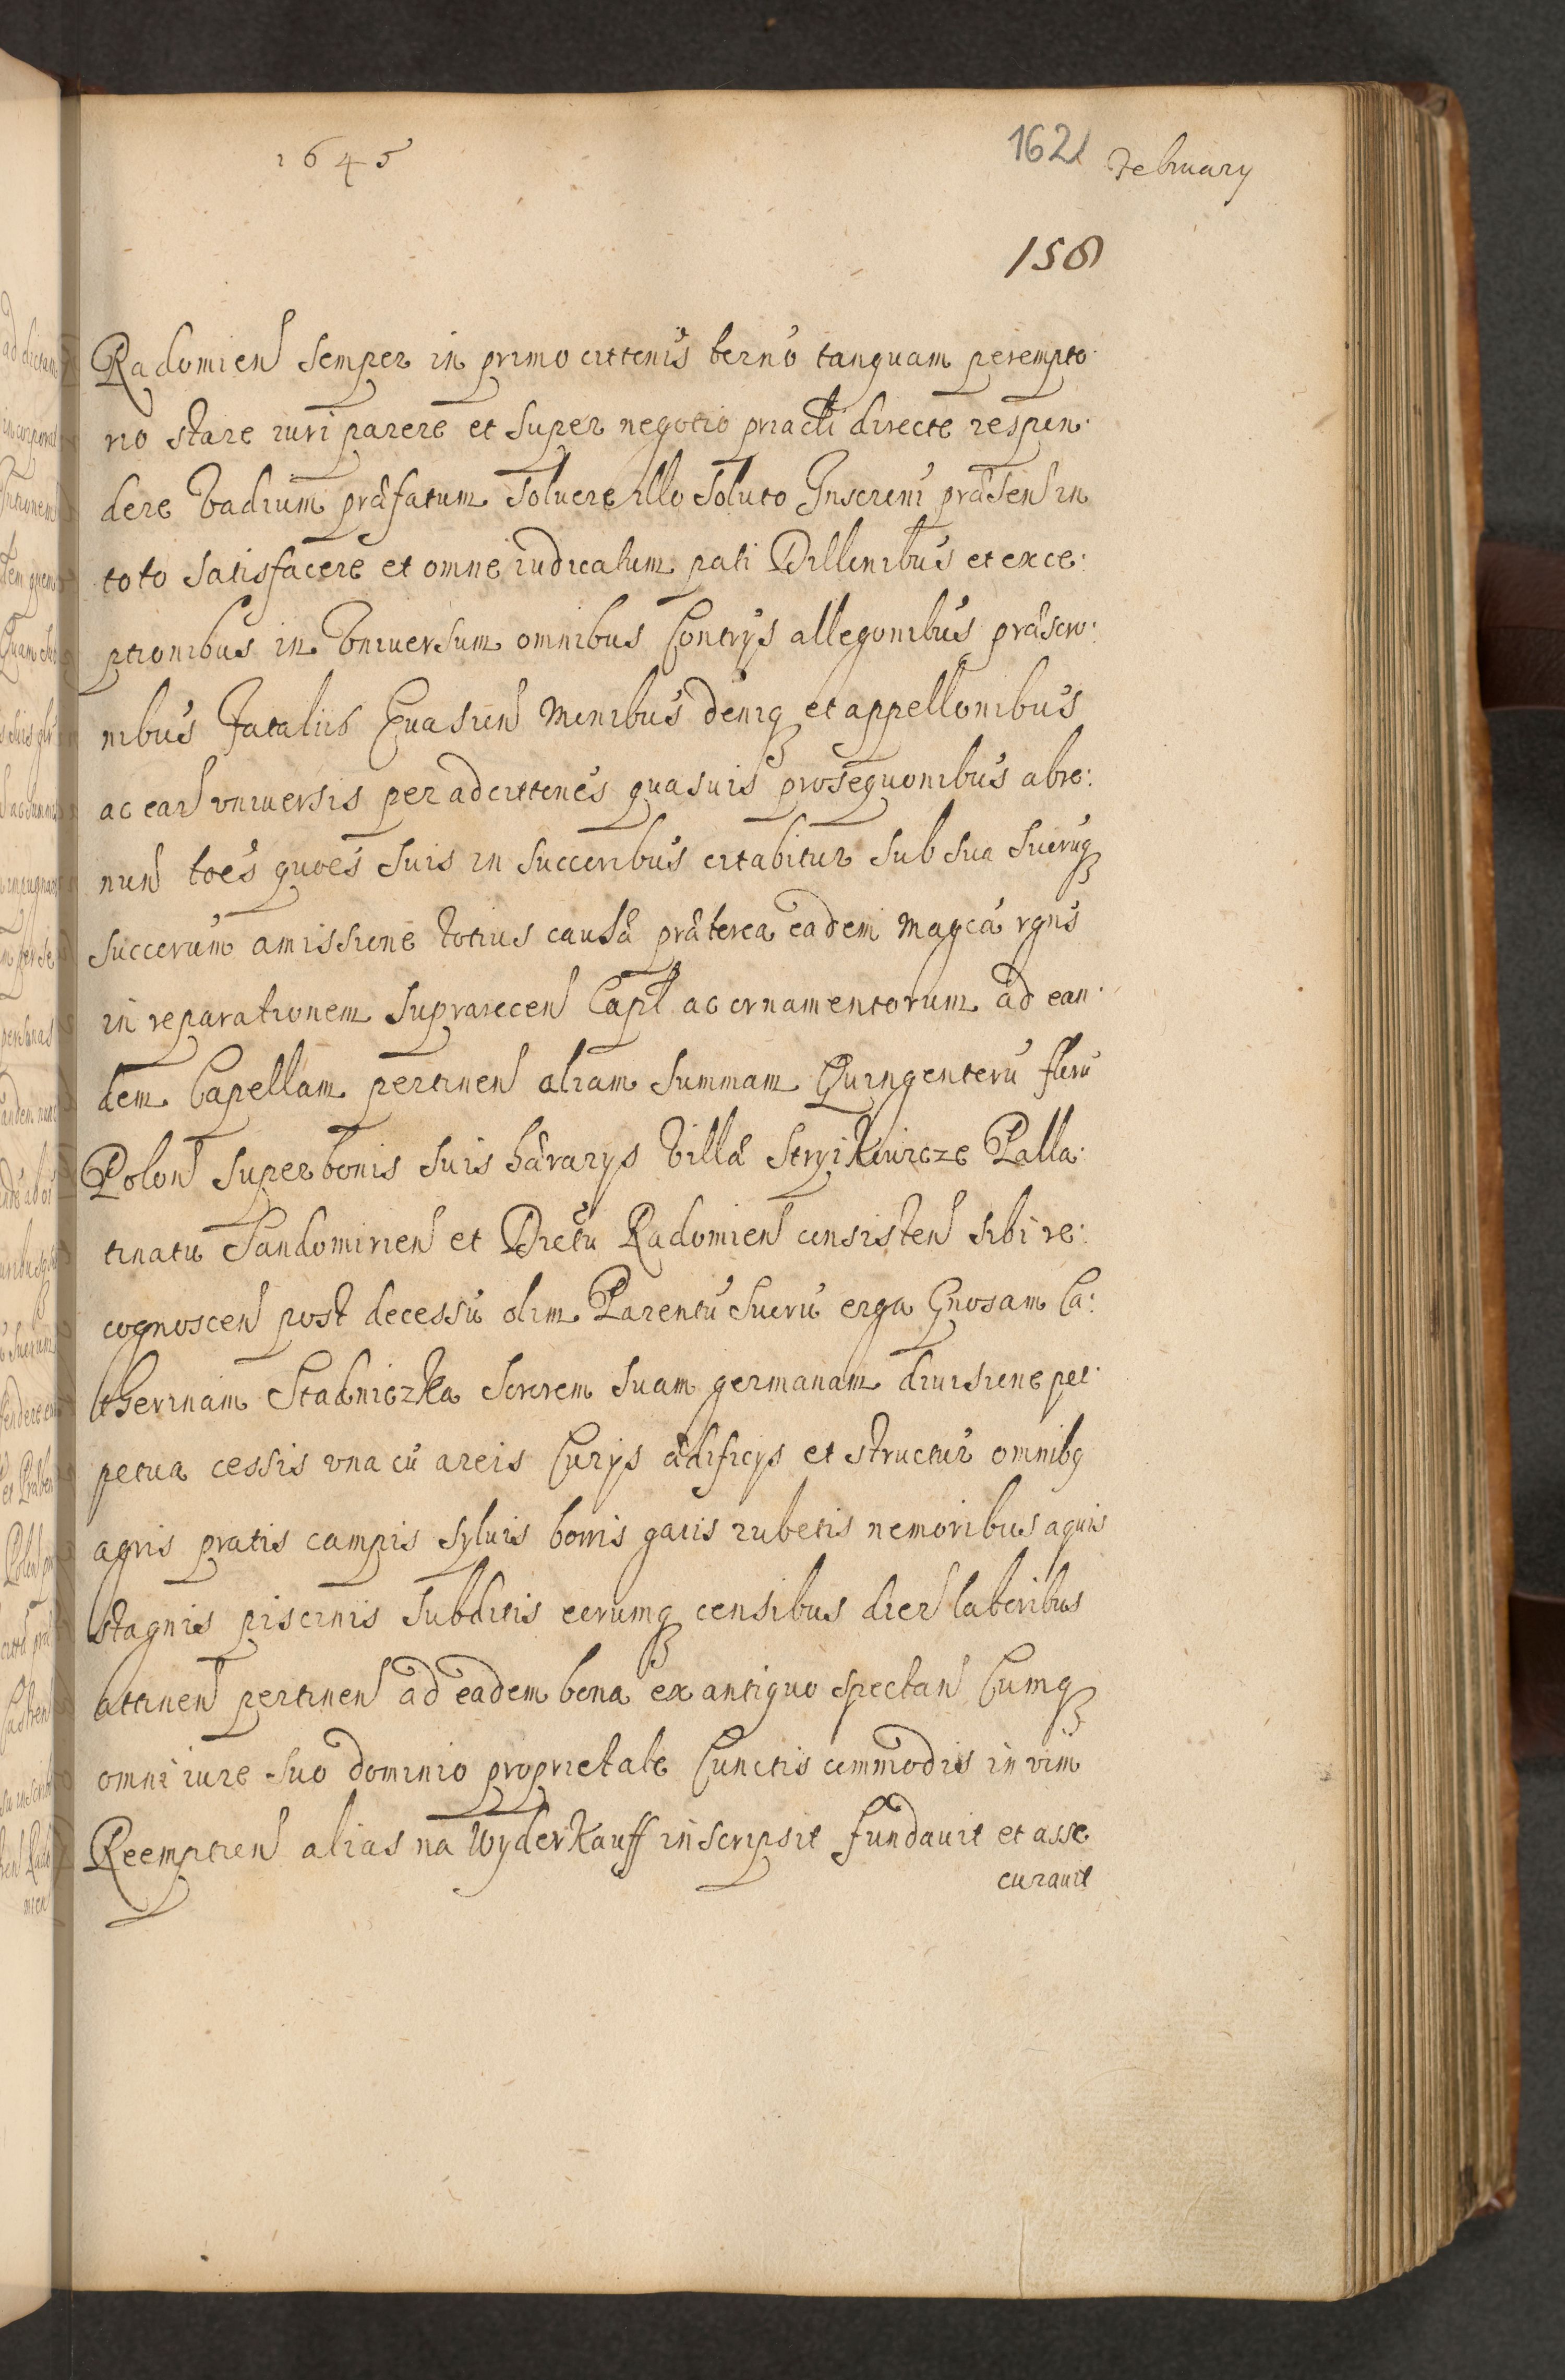 1645
162
February
158
Radomien semper in primo cittonis termo tanquam perempto:
rio stare iuri parere et super negotio praacti directe respon:
dere Vadium præfatum soluere illo soluto Inscroni præsen in
toto satisfacere et omne iudicatum pati Dillonibus et exce:
ptionibus in Vniuersum omnibus Contrys allegonibus præscro:
nibus Fataliis Euasion Monibus deniq et appellonibus
ac ear vniuersis per adcittones quasuis prosequonibus abre:
nun toes quoes suis in succoribus citabitur sub sua suorúq
succorum amissione totius causæ præterea eadem Magca rgns
in reparationem suprarecen Capl ac ornamentorum ad ean:
dem Capellam pertinen aliam summam Quingentorú floru
Polon super bonis suis hærarys Villæ Stryikowicze Palla:
tinatu Sandomirien et Dictu Radomien consisten sibi re:
cognoscen post decessú olim Parentú suorú erga Gnosam Ca:
therinam Stadniczka sororem suam germanam diuisione per:
petua cessis vna cú areis Curys ædificys et structur omnibq
agris pratis campis syluis borris gaiis rubetis nemoribus aquis
stagnis piscinis subditis eorumq censibus dier laboribus
attinen pertinen ad eadem bona ex antiquo spectan Cumq
omni iure suo dominio proprietate Cunctis commodis in vim
Reemption alias na Wyderkauff inscripsit fundauit et asse
curauit